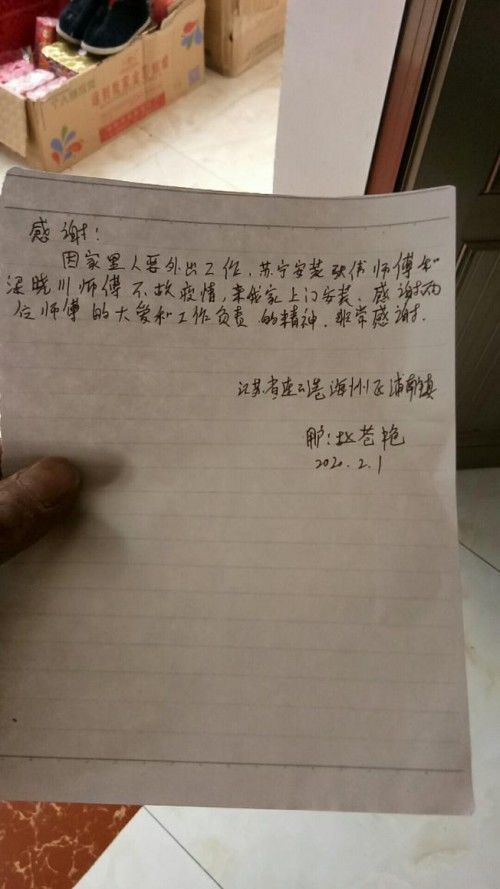 感谢!
因家里人要外出工作,苏宁安装耿伟师傅和
梁晓川师傅不故疫情,来我家上门安装,感谢两
位师傅的大爱和工作负责的精神.非常感谢.
江苏省连云港海州区浦南镇
用户:赵苍艳
2020.2.1